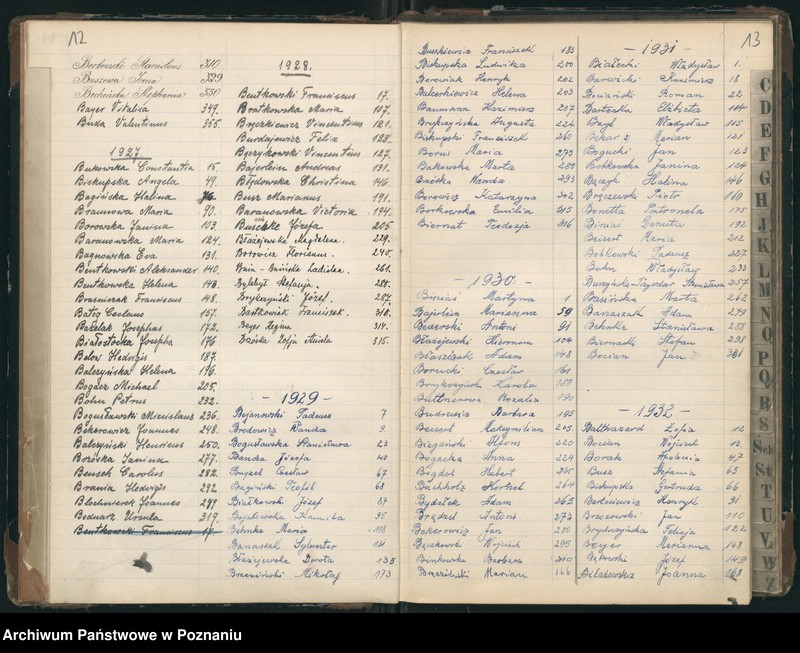 12
Berbowski Stanislaus 310
Buszowa Irena 329
Bocheńska Stephania 330
Bayer Vitalia 349.
Buda Valentinus 355.
1927
Bukowska Constantia 15.
Biskupska Angela 49.
Bagińska Halina 76.
Braunowa Maria 90.
Borowska Janina 103.
Baranowska Maria 124.
Bagnowska Eva 131.
Bentkowski Aleksander 140.
Bentkowska Helena 143.
Brasniczak Franciscus 148.
Bates Ceslaus 157.
Bartelak Josephus 172.
Białostocka Josepha 176
Below Hedvigis 187.
Balczyńska Helena 196.
Bogacz Michael 205.
Bohn Petrus 232.
Bogusławski Miecislaus 236.
Bekerowicz Joannes 248.
Balczyński Henricus 250.
Borówka Janina 277.
Bensch Carolus 282.
Brania Hedvigis 292
Blochwierz Joannes 299
Bednarz Ursula 319.
Bentkowski Franciscus 17.
1928.
Bentkowski Franciscus 17.
Bratkowska Maria 107.
Bączkiewicz Vincentius 121.
Burdajewicz Felix 125.
Bączykowski Vincentius 127.
Bajerlein Andreas 131.
Błędowska Christina 146.
Busz Marianus 191.
Baranowska Victoria 194.
Buschke Józefa 205
Błażejewska Magdalena. 229.
Borowicz Florianus. 240.
Bnin-Bniński Ladislaus. 261.
Bylebył Stefanja. 285.
Brykczyński Józef. 287.
Bartkowiak Franciszek. 310.
Beyer Regina 314.
Bzówka Zofja Aniela 315.
- 1929 -
Bejanowski Tadeusz 7
Brodowicz Wanda 9.
Bogusławska Stanisława 23
Banda Józefa 40
Bugzel Czesław 67
Bagiński Teofil 68
Białkowski Józef 87
Bojałowska Kamila 95
Behnke Maria 118
Banaszak Sylwester 131
Błażejewska Dorota 135
Brzeziński Mikołaj 173
Buszkiewicz Franciszek 183
Biskupska Ludwika 200
Borowiak Henryk 202
Balcerkiewicz Helena 203
Baumann Kazimierz 207
Brykczyńska Augusta 224
Biskupski Franciszek 260
Boruń Maria 273
Bukowska Marta 280
Bzówka Wanda 293
Borowicz Katarzyna 302
Borkowska Emilia 315
Biernat Teodozja 316
- 1930 -
Biniaś Martyna 1
Bajerlein Marianna 59
Bederski Antoni 91
Błażejewski Hieronim 104
Błaszczak Adam 148
Borucki Czesław 161
Brykczyńska Karola 180
Buttnerowa Rozalia 190
Budrewicz Barbara 195
Beisert Maksymilian 205.
Biegański Alfons 220
Bogacka Anna 224
Bogdoł Hubert 225
Buchholz Herbert 264
Bydałek Adam 265
Brązdel Antoni 273
Bekerowicz Jan 280
Bączkowski Wojciech 295
Binkowska Barbara 310
Brzeziński Marian 166
13
- 1931 -
Białecki Władysław 1.
Barwicki Kazimierz 18
Beniański Roman 22
Bartecka Elżbieta 104
Bazyl Władysław 115
Marian 121
Bogucki Jan 123
Bobkowska Janina 124
Bączyk Halina 146
Bręczewski Piotr 169
Bonetta Petronela 175
Biniaś Danuta 192
Beisert Maria 212
Bobkowski Tadeusz 227
Bohn Władysław 233
Stanisława 257
Marta 262
Banaszak Adam 279
Behnke Stanisława 288
Biernacki Stefan 298
Bocian Jan 331
- 1932 -
Balthazard Zofia 12
Bocian Wojciech 13
Borak Apolonia 47
Busz Stefania 65
Biskupska Gertruda 66
Bartusiewicz Henryk 91
Brzozowski Jan 110
Brykczyńska Felicja 122
Bayer Marianna 148
Bętkowski Józef 149
Błażewska Joanna 168
C
D
E
F
G
H
J
K
L
M
N
O
P
Q
R
S
Sch
St
T
U
V
W
Z
Archiwum Państwowe w Poznaniu